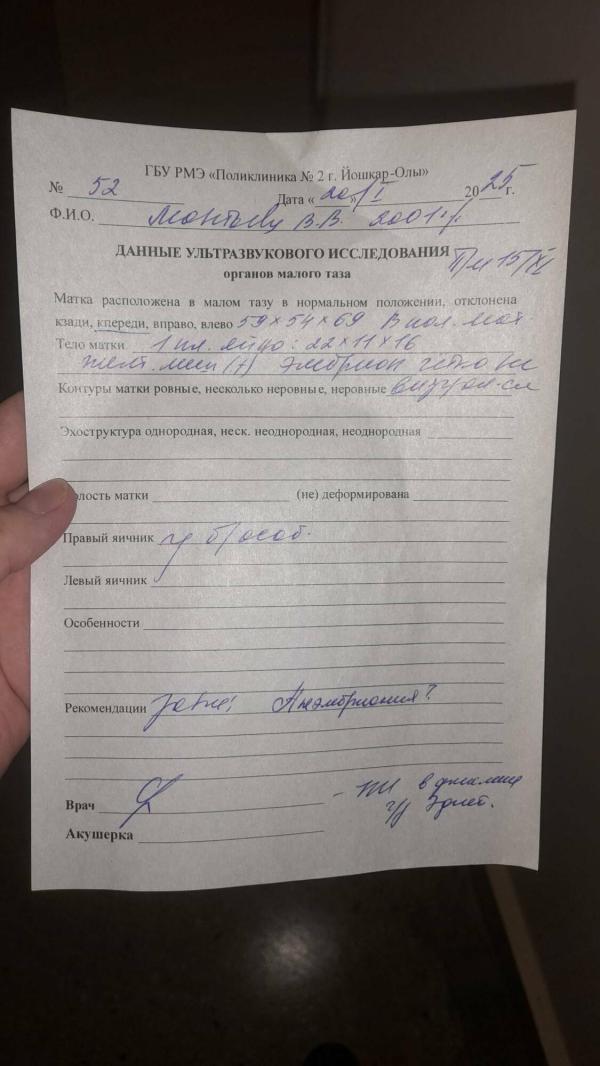 ГБУ РМЭ «Поликлиника № 2 г. Йошкар-Олы»
№ 52 Дата «20» I 2025 г.
Ф.И.О. В.В. 2001 г.
ДАННЫЕ УЛЬТРАЗВУКОВОГО ИССЛЕДОВАНИЯ
органов малого таза П/м 15/XI
Матка расположена в малом тазу в нормальном положении, отклонена
кзади, кпереди, вправо, влево 59×54×69 В пол. мат.
Тело матки 1 пл. яйцо: 22×11×16
желт. меш (+) эмбрион четко не
Контуры матки ровные, несколько неровные, неровные визуал-ся
Эхоструктура однородная, неск. неоднородная, неоднородная
Полость матки (не) деформирована
Правый яичник б/особ.
Левый яичник
Особенности
Рекомендации Анэмбриония?
Врач
- в
Акушерка